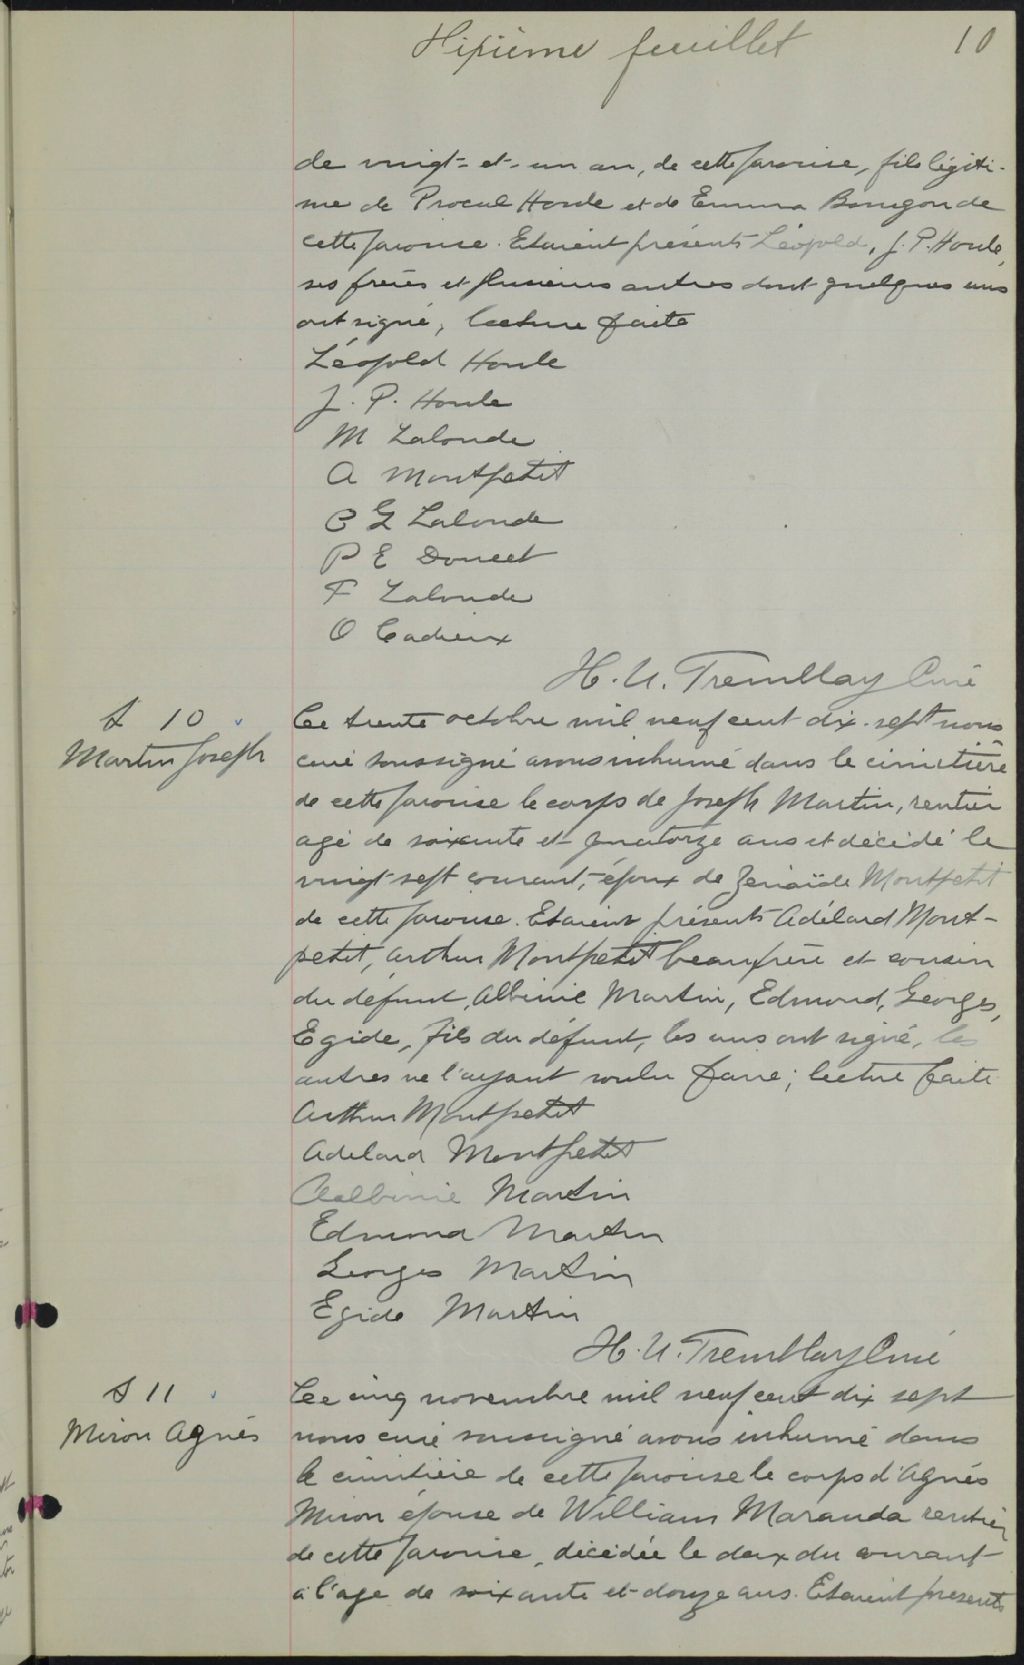 feuillet 10
de vingt-et-un an, de cette paroisse, fils légiti-
me de Procul Houle et de Emma Bourgon de
cette paroisse. Etaient présents Léopold, J. P. Houle,
ses frères et plusieurs autres dont quelques uns
ont signé, lecture faite
Léopold Houle
J. P. Houle
M Lalonde
A Montpetit
C G Lalonde
P E Doucet
F Lalonde
O Cadieux
H. U. Tremblay Curé
S 10
Martin Joseph
Ce trente octobre mil neuf cent dix-sept nous
curé soussigné avons inhumé dans le cimetière
de cette paroisse le corps de Joseph Martin, rentier
agé de soixante et quatorze ans et décédé le
vingt sept courant, époux de Zénaïde Montpetit
de cette paroisse. Etaient présents Adélard Mont-
petit, Arthur Montpetit beaufrère et cousin
du défunt, Albinie Martin, Edmond, Georges,
Egide, fils du défunt, les uns ont signé, les
autres ne l'ayant voulu faire; lecture faite
Arthur Montpetit
Adelard Montpetit
Albinie Martin
Edmond Martin
Georges Martin
Egide Martin
H. U. Tremblay Curé
S 11
Miron Agnès
Ce cinq novembre mil neuf cent dix sept
nous curé soussigné avons inhumé dans
le cimitière de cette paroisse le corps d'Agnès
Miron épouse de William Maranda rentier
de cette paroisse, décédée le deux du courant
à l'age de soixante et douze ans. Etaient présents